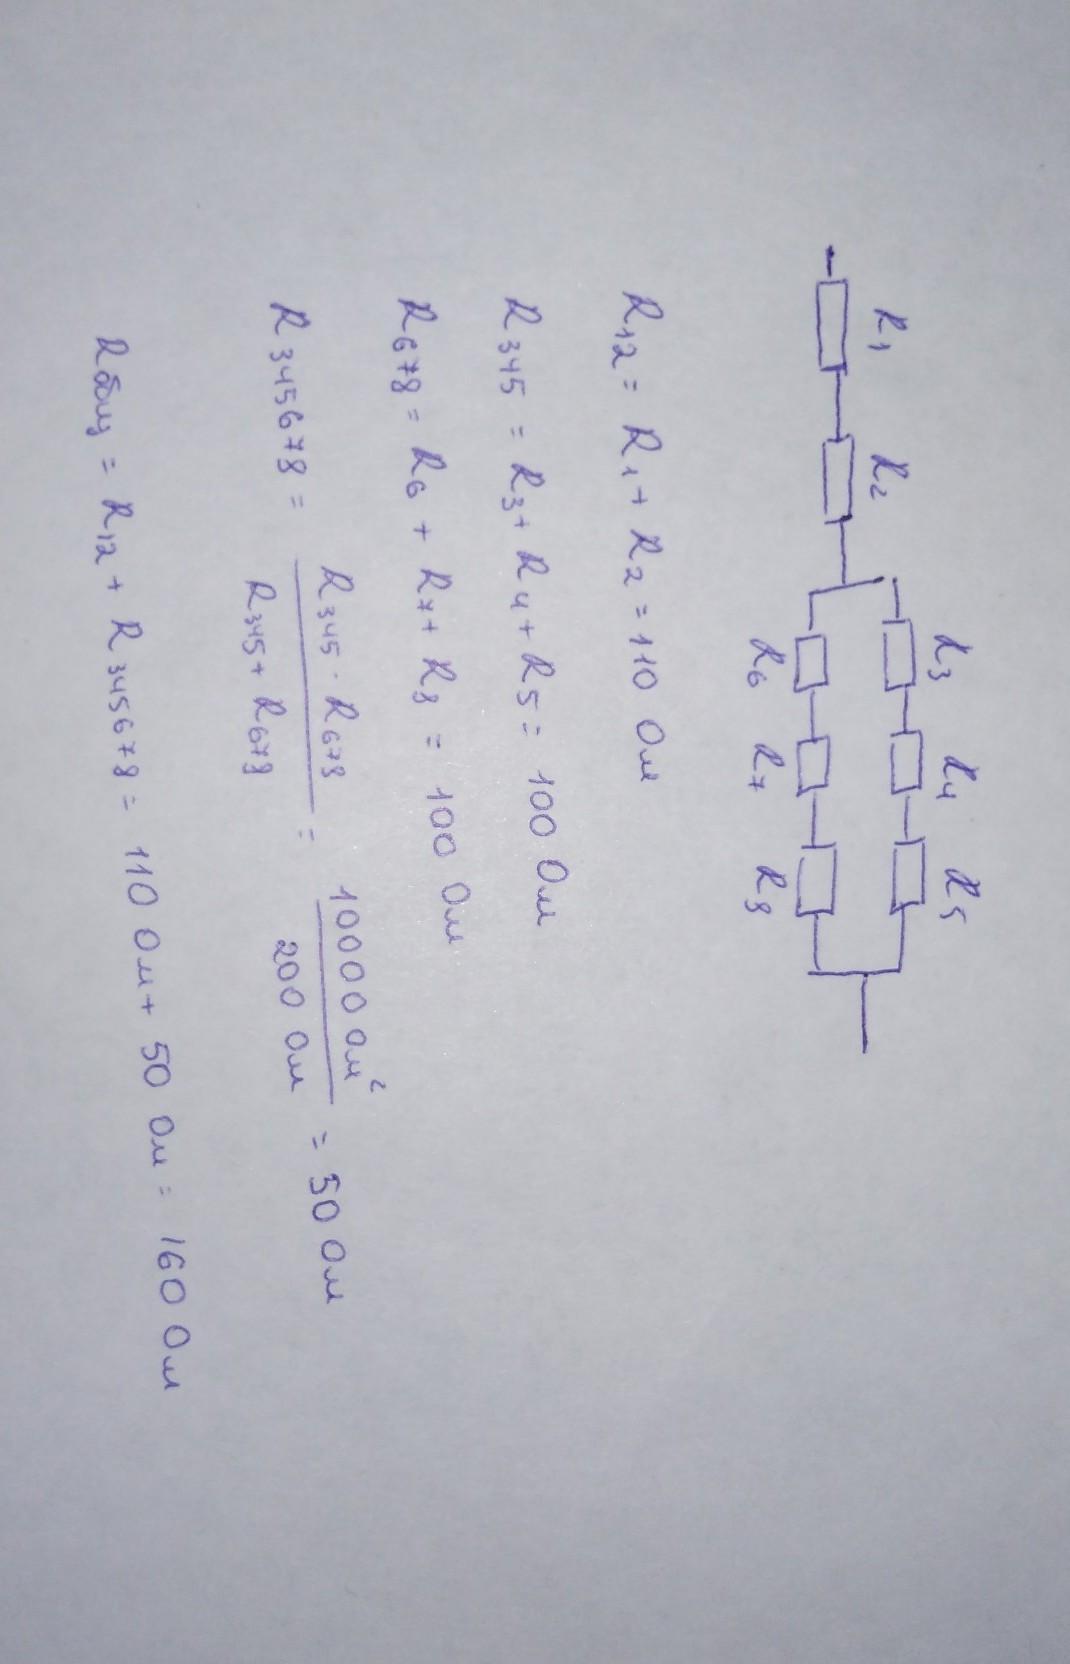 R1 R2 R3 R4 R5
R6 R7 R8
R12 = R1 + R2 = 110 Ом
R345 = R3 + R4 + R5 = 100 Ом
R678 = R6 + R7 + R8 = 100 Ом
R345678 = R345 · R678 / R345 + R678 = 10000 Ом² / 200 Ом = 50 Ом
Rобщ = R12 + R345678 = 110 Ом + 50 Ом = 160 Ом